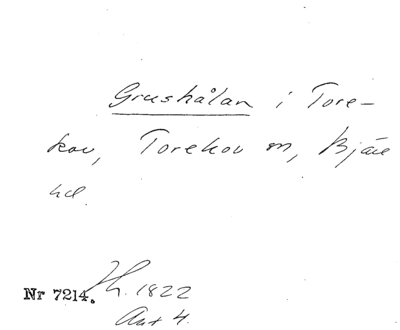 Grushålan i Tore-
kov, Torekov sn, Bjäre
hd.
Nr 7214. Lh. 1822
Avt 4.